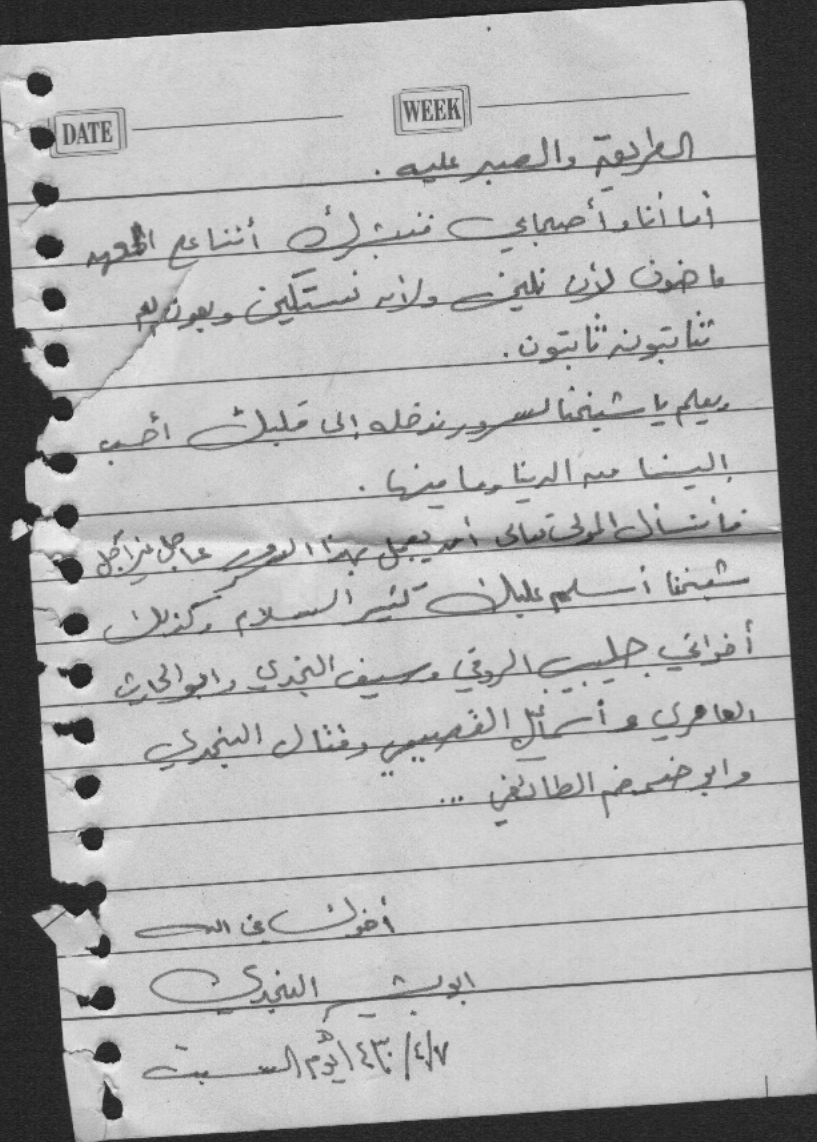 DATE WEEK
الطريق والصبر عليه .
أما أنا وأصحابي فنبشرك أننا على العهد
ماضون لان نلين ولان نستكين وبعون الله
ثابتون ثابتون .
ويعلم يا شيخنا لسرور ندخله إلى قلبك أحب
إلينا من الدنيا وما فيها .
فأنسأل المولى تعالى أن يعجل بهذا عاجل غير آجل
شيخنا أسلم عليك كثير السلام وكذلك
أخواني جليبيب الروقي وسيف النجدي وابوالحارث
العامري و القصيمي وقتال النجدي
وابو ضمضم الطائفي ...
أخوك في الله
ابو بشير النجدي
٤٣٠/٤/٧ ١هـ يوم السبت